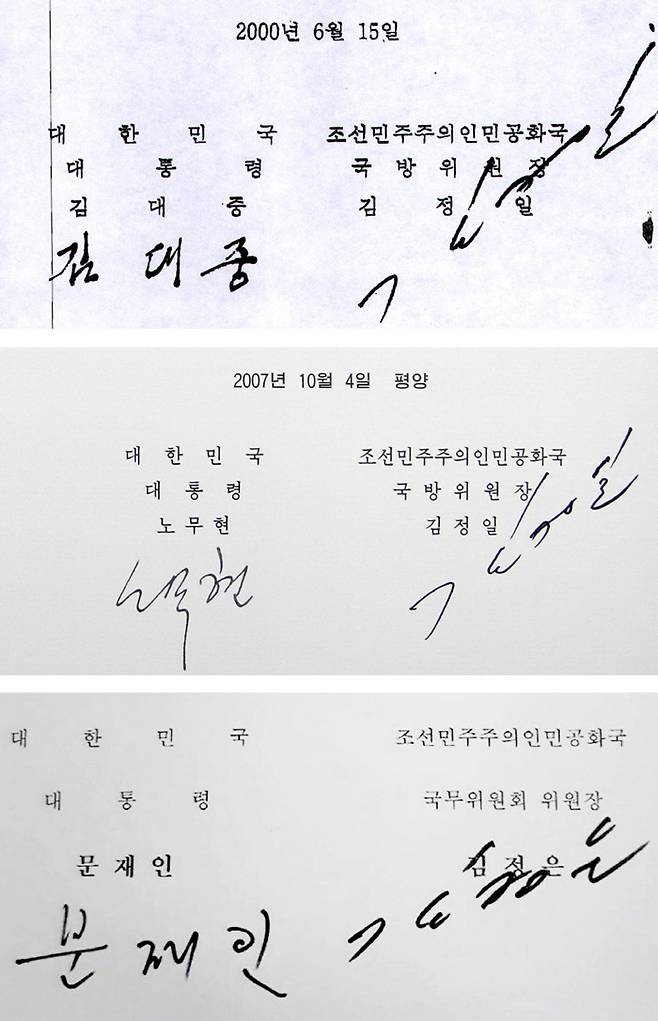 2000년 6월 15일
대 한 민 국
대 통 령
김 대 중
김 대 중
조선민주주의인민공화국
국 방 위 원 장
김 정 일
김정일
2007년 10월 4일 평양
대 한 민 국
대 통 령
노 무 현
노무현
조선민주주의인민공화국
국 방 위 원 장
김 정 일
김정일
대 한 민 국
대 통 령
문 재 인
문 재 인
조선민주주의인민공화국
국무위원회 위원장
김 정 은
김정은